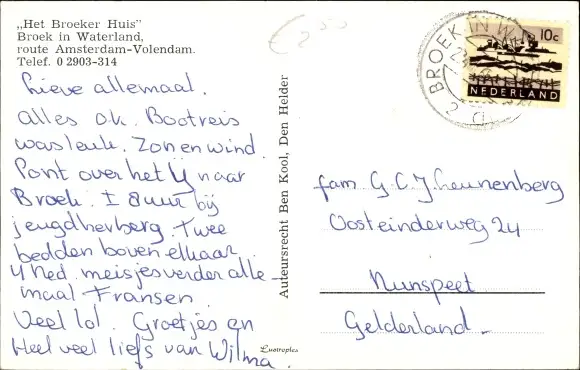 „Het Broeker Huis”
Broek in Waterland,
route Amsterdam-Volendam.
Telef. 0 2903-314
Lieve allemaal.
Alles o.k. Bootreis
was leuk. Zon en wind.
Pont over het Y naar
Broek. ± 8 uur bij
jeugdherberg. Twee
bedden boven elkaar.
4 Ned. meisjes verder alle-
maal Fransen.
Veel lol. Groetjes en
Heel veel liefs van Wilma.
Auteursrecht Ben Kool, Den Helder
Lustroplex
BROEK IN W
10c
NEDERLAND
fam. G.C.J. Leunenberg
Oosteinderweg 24
Nunspeet
Gelderland.